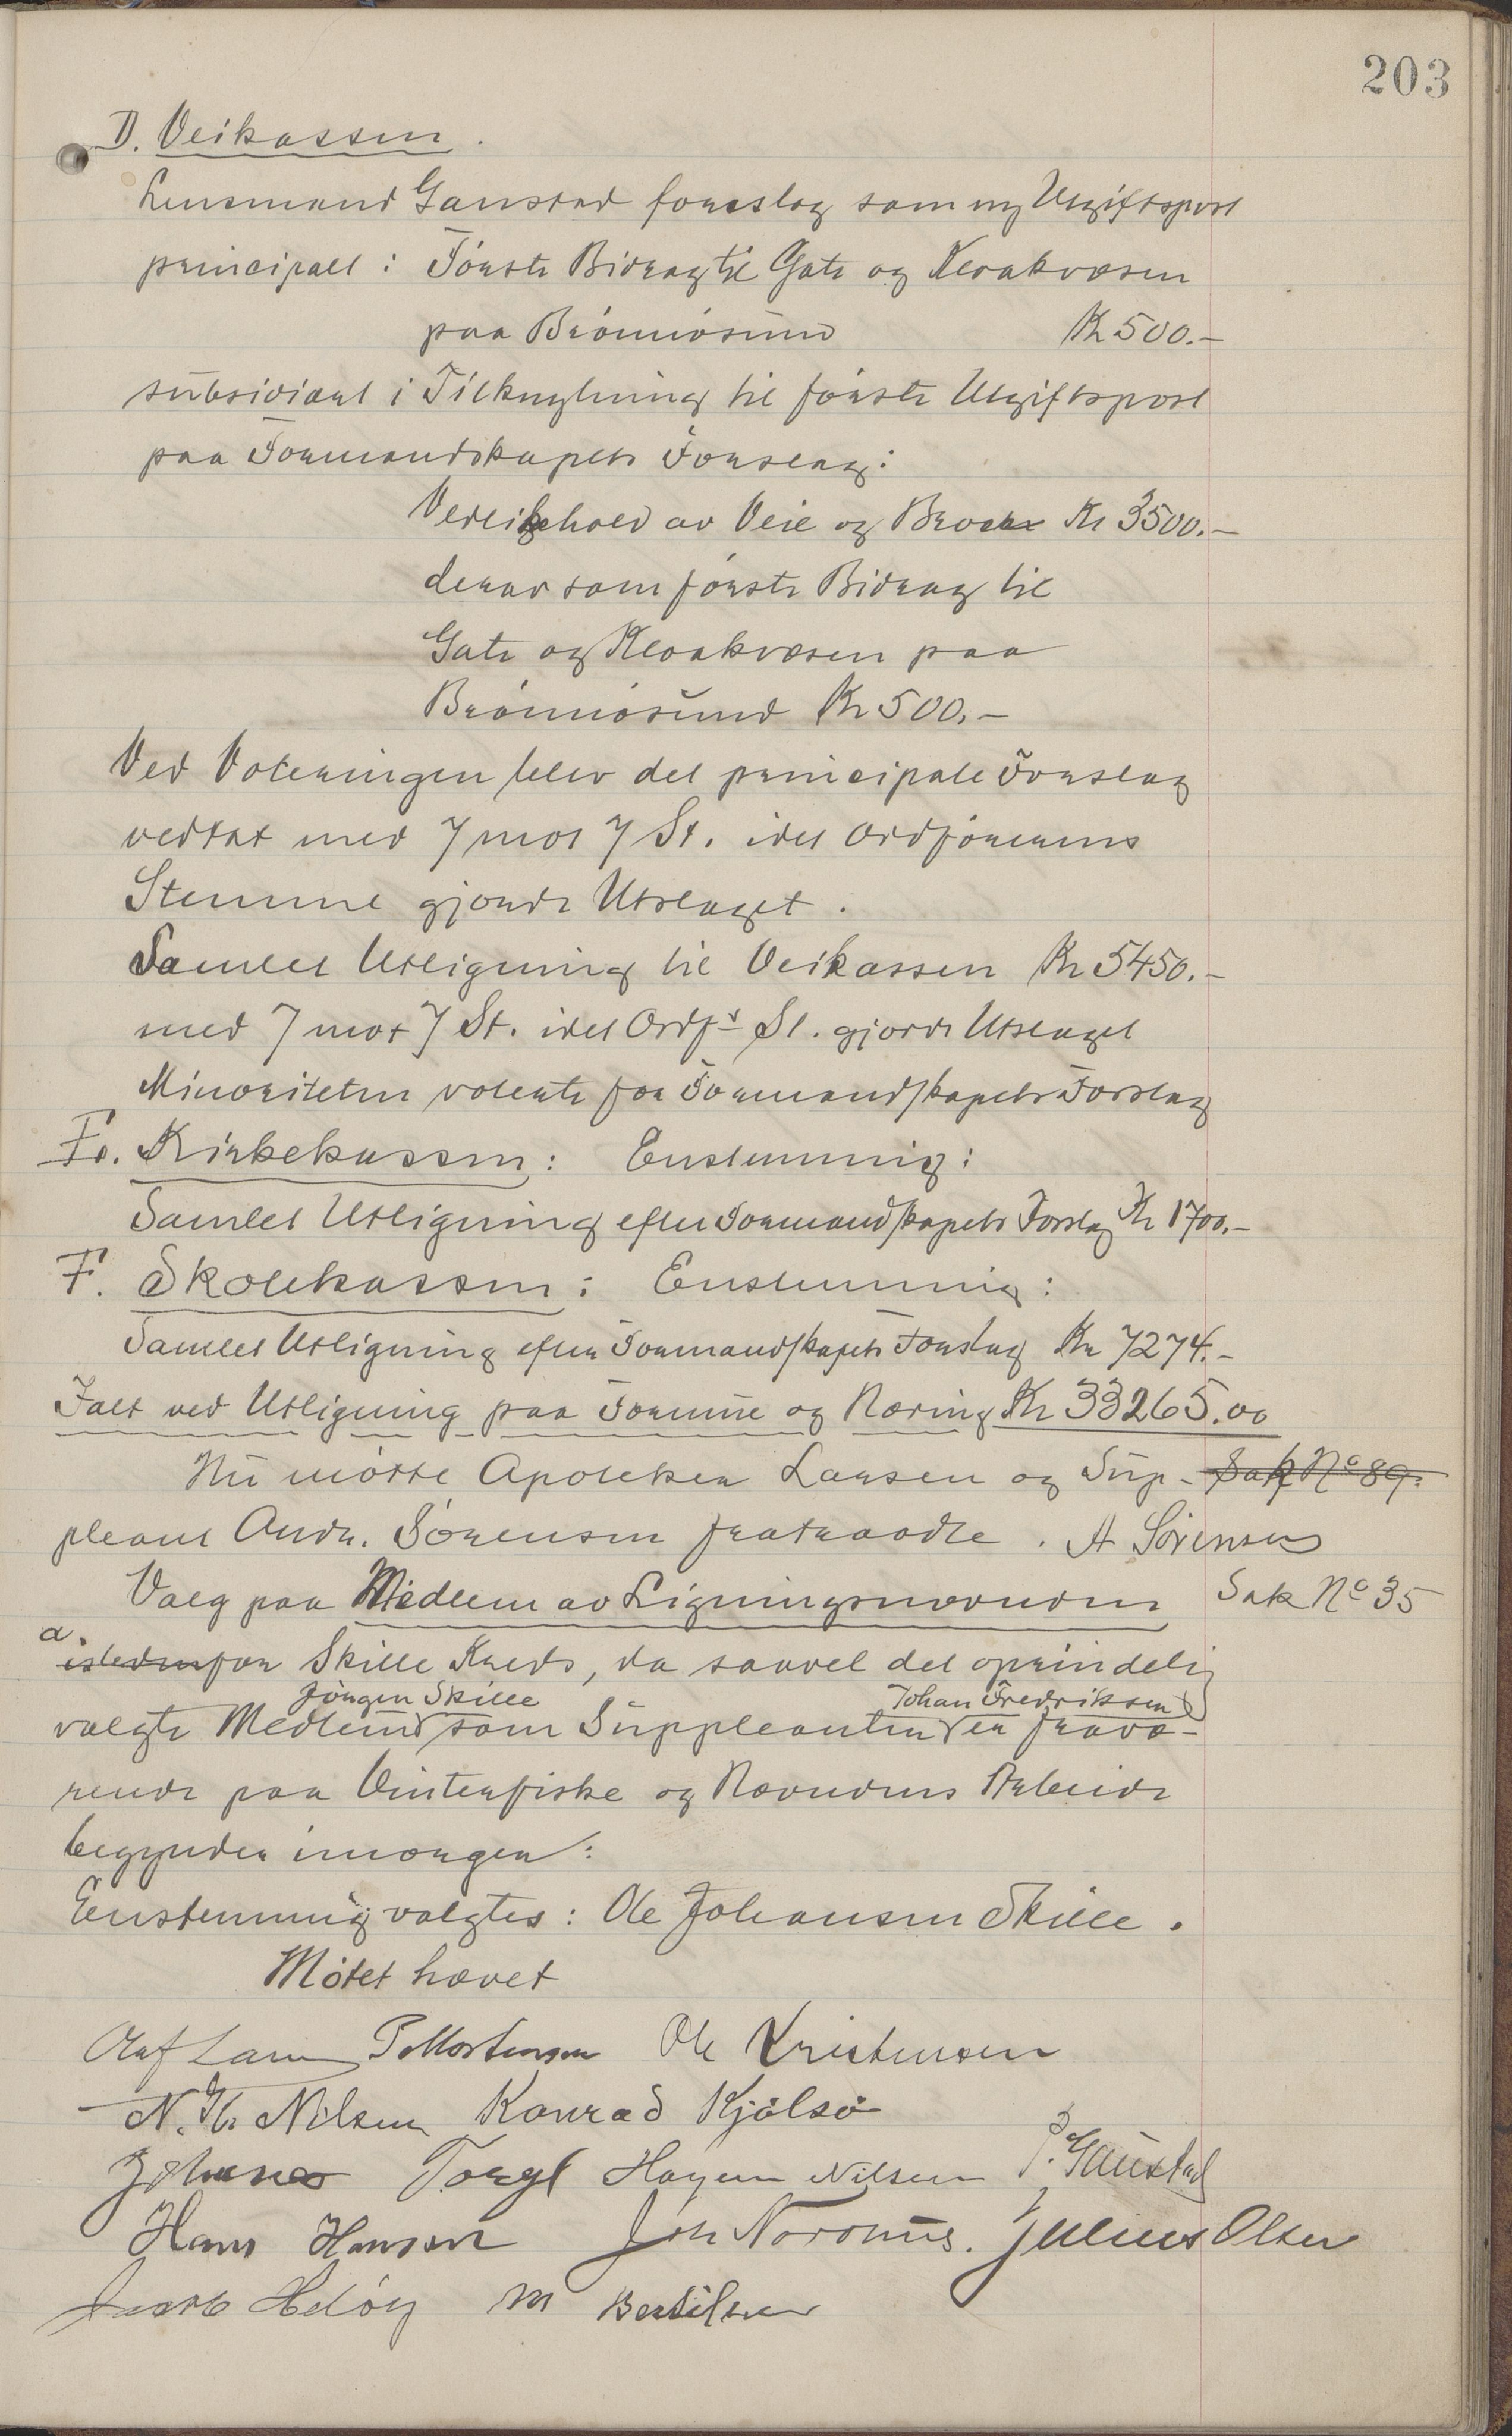 203
D. Veikassen.
Lensmand Gaustad foreslog som ny Utgiftspost
principalt: Förste Bidrag til Gate og Kloakvæsen
paa Brönnösund Kr 500.-
subsidiært i Tilknytning til förste Utgiftspost
paa Formandskapets Forslag:
Vedlikehold av Veie og Broer Kr 3500.-
derav som förste Bidrag til
Gate og Kloakvæsen paa
Brönnösund Kr 500.-
Ved Voteringen blev det principale Forslag
vedtat med 7 mot 7 St. idet Ordförerens
Stemme gjorde Utslaget.
Samlet Utligning til Veikassen Kr 5450.-
med 7 mot 7 St. idet Ordfs St. gjorde Utslaget
Minoriteten voterte for Formandskapets Forslag
E. Kirkekassen: Enstemmig:
Samlet Utligning efter Formandskapets Forslag Kr 1700.-
F. Skolekassen: Enstemmig:
Samlet Utligning efter Formandskapets Forslag Kr 7274.-
Ialt ved Utligning paa Formue og Næring Kr 33265.00
Nu mötte Apoteker Larsen og Sup- Sak No 89.
pleant Andr. Sörensen fratraadte. A Sörensen
Valg paa Medlem av Ligningsnævnden Sak No 35
a.
istedenfor Skille Kreds, da saavel det oprindelig
Jörgen Skille Johan Fredriksen
valgte Medlem som Suppleanten er fravæ-
rende paa Vinterfiske og Nævndens Arbeide
begynder imorgen:
Enstemmig valgtes: Ole Johansen Skille.
Mötet hævet
Olaf Larsen P Mortensen Ole Kristensen
N. Kr. Nilsen Konrad Kjölsö
Johannes Torgl Hagen Nilsen P. Gaustad
Hans Hansen Joh Norønes. Julius Olsen
Jacob Helöy M Bertilsen